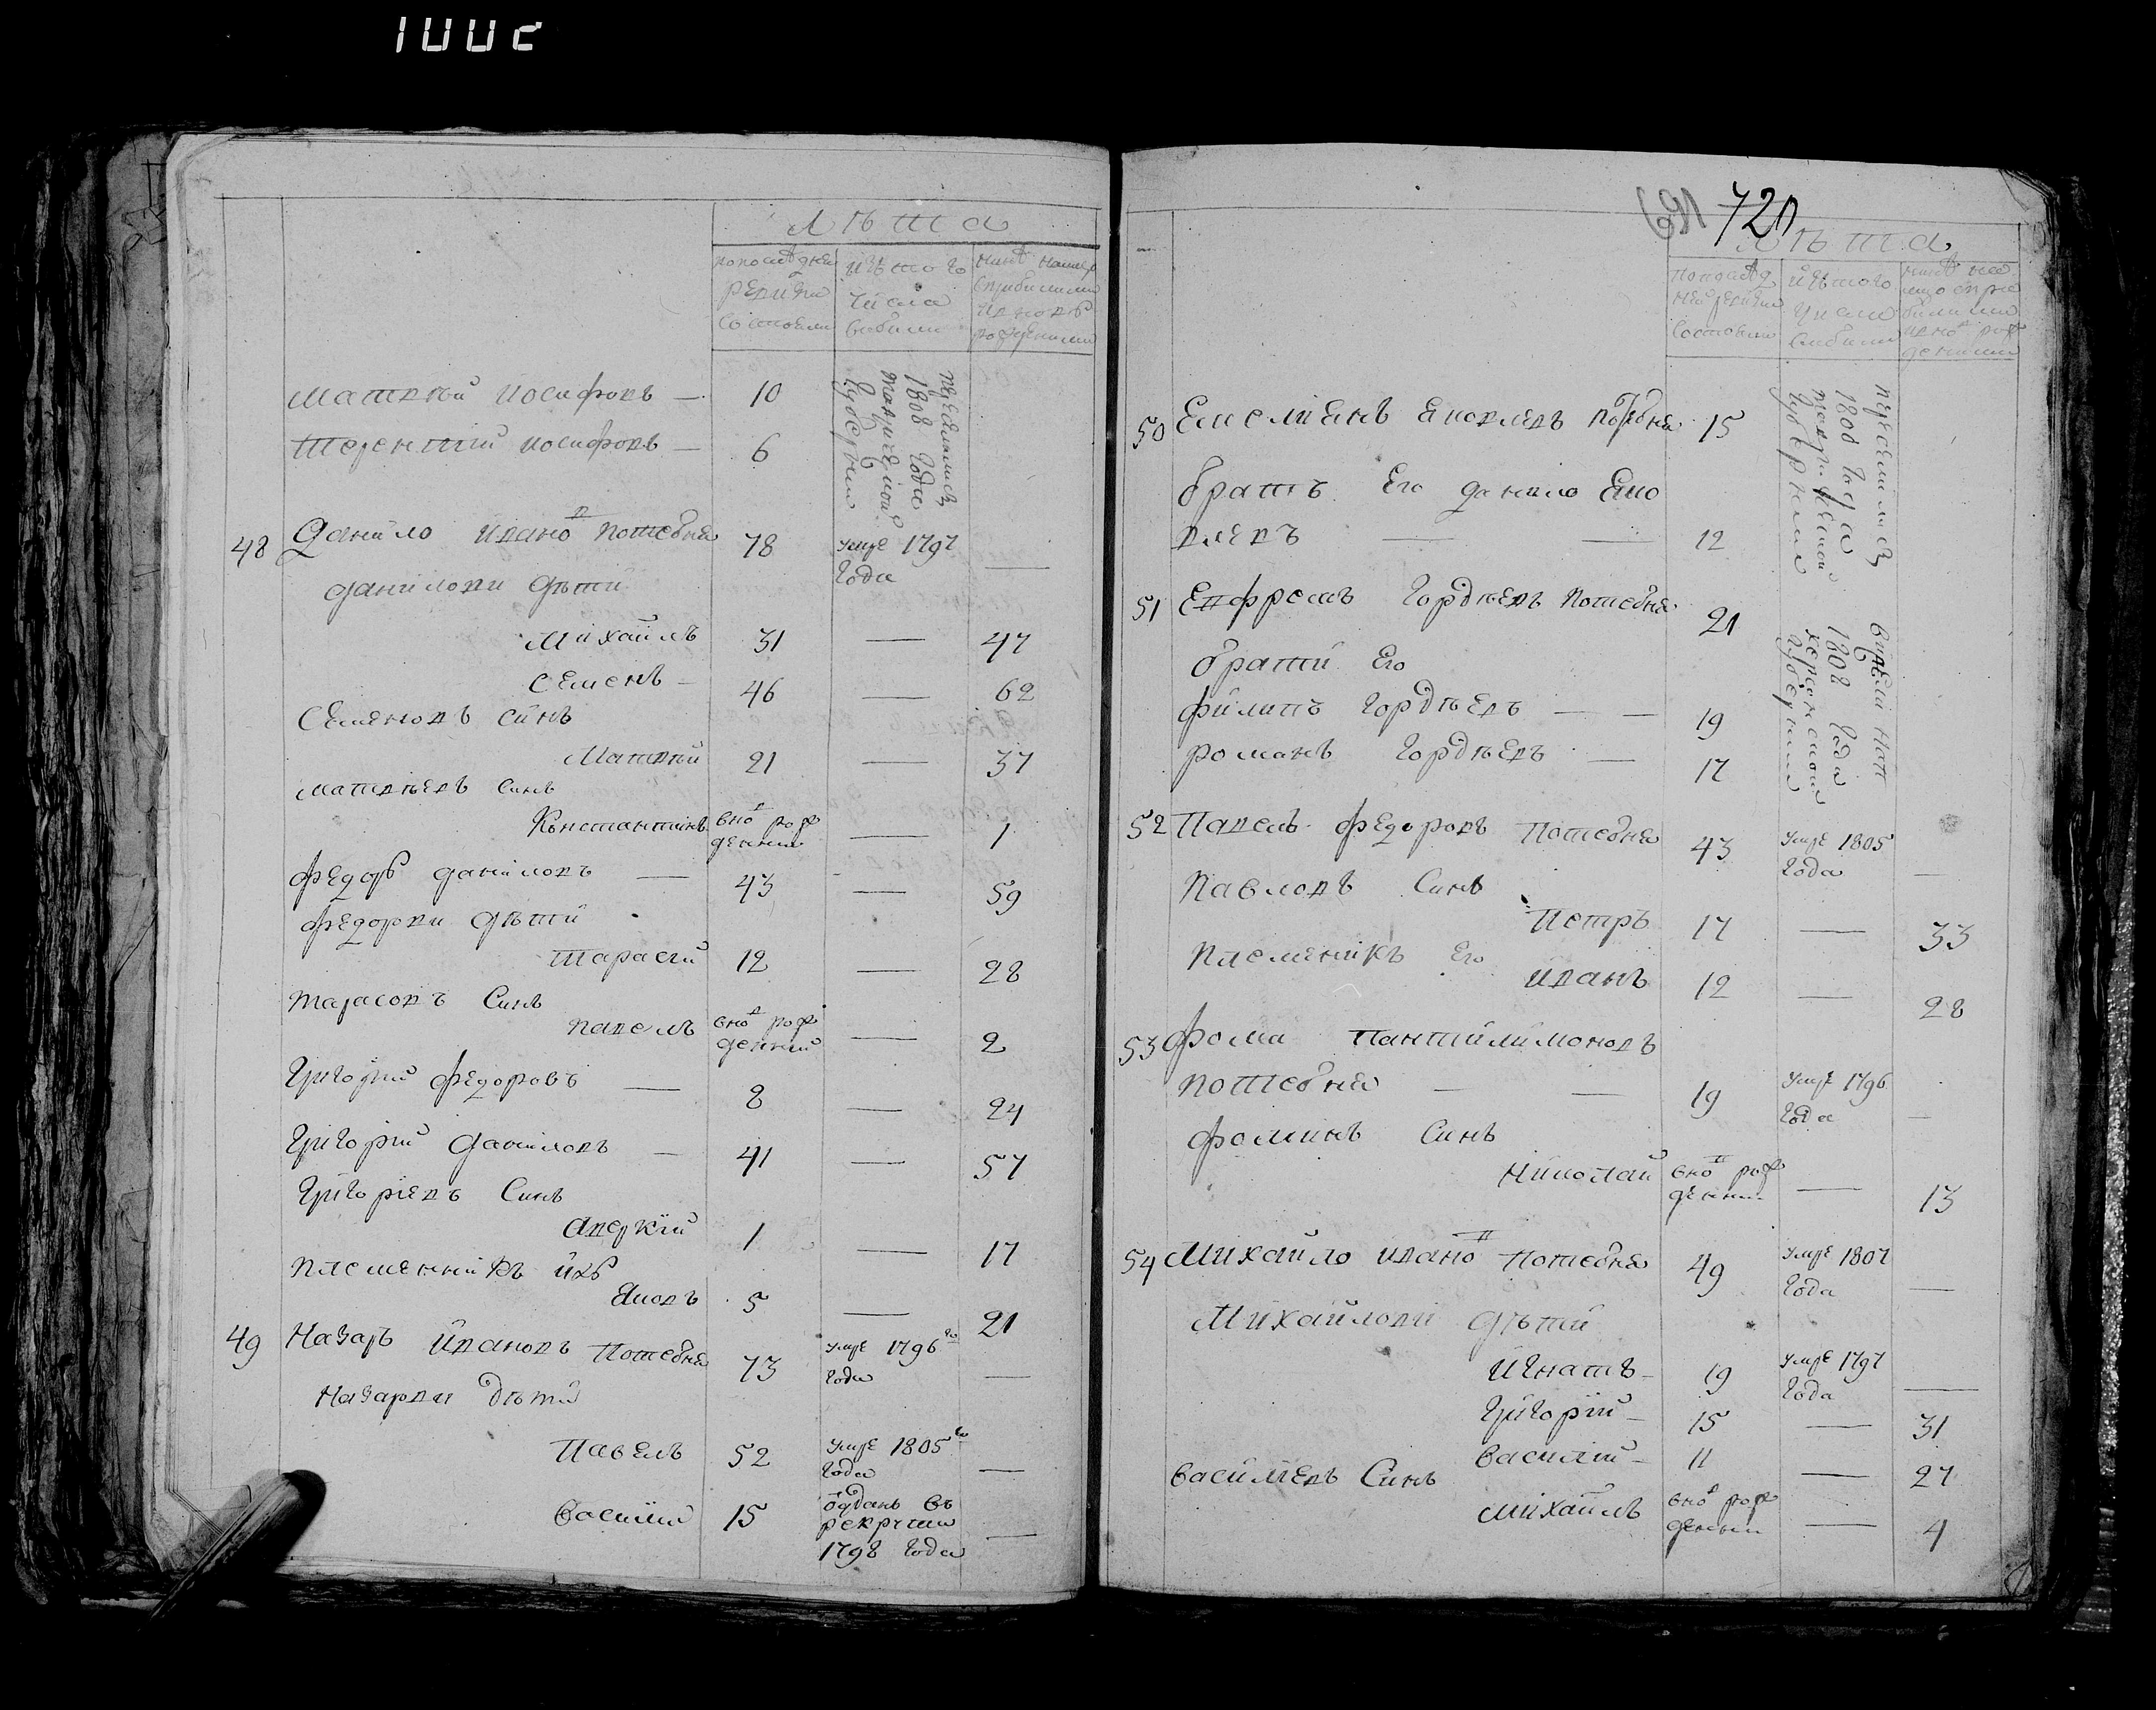 Лѣта
по последней
ревизии
состояли
изъ того
числа
выбыли
ныне налицо
съ прибылыми
и вновь
рожденными
Матвѣй Иосифовъ — 10
переселились
1808 года
таврической
губернии
Терентий Иосифовъ — 6
48 Данило Ивановъ Потебня 78 умре 1797 —
года
Даниловы дѣти
Михайлъ 31 — 47
Семенъ — 46 — 62
Семеновъ синъ
Матвѣй 21 — 37
Матвѣевъ синъ
Константинъ вновь рож — 1
денний
Федоръ Даниловъ — 43 — 59
Федорови дѣти
Тарасий 12 — 28
Тарасовъ Синъ
Павелъ вновь рож — 2
денний
Григорий Федоровъ — 8 — 24
Григорий Даниловъ — 41 — 57
Григориевъ Синъ
Аверкїй 1 — 17
Племенникъ ихъ
Яковъ 5 — 21
49 Назаръ Ивановъ Потебня 73 умре 1796го —
года
Назарови дѣти
Павелъ 52 умре 1805го —
года
Василий 15 отданъ въ —
рекрути
1798 года
720
Лѣта
по послѣд
ней ревизии
состояли
изъ того
числа
выбыли
ныне на
лицо съ при
былыми
и вновь рож
денними
50 Емелиянъ Яковлевъ Потебня 15
переселились
1808 года
таврической
губернии
братъ Его Данило Яко
влевъ — — 12
51 Евфремъ Гордѣевъ Потебня 21
1808 года
херсонской
губернии
брати Его
Филипъ Гордѣевъ — — 19
Романъ Гордѣевъ — 17
52 Павелъ Федоровъ Потебня 43 умре 1805 —
года
Павловъ Синъ
Петръ 17 — 33
Племеникъ Его
Иванъ 12 — 28
53 Фома Пантилимоновъ
Потебня — — 19 умре 1796 —
года
Фоминъ Синъ
Николай вновь рож — 13
денний
54 Михайло Ивановъ Потебня 49 умре 1807 —
года
Михайлови дѣти
Игнатъ — 19 умре 1797 —
года
Григорїй — 15 — 31
Василий — 11 — 27
Василиевъ Синъ
Михайлъ вновь рож — 4
денний